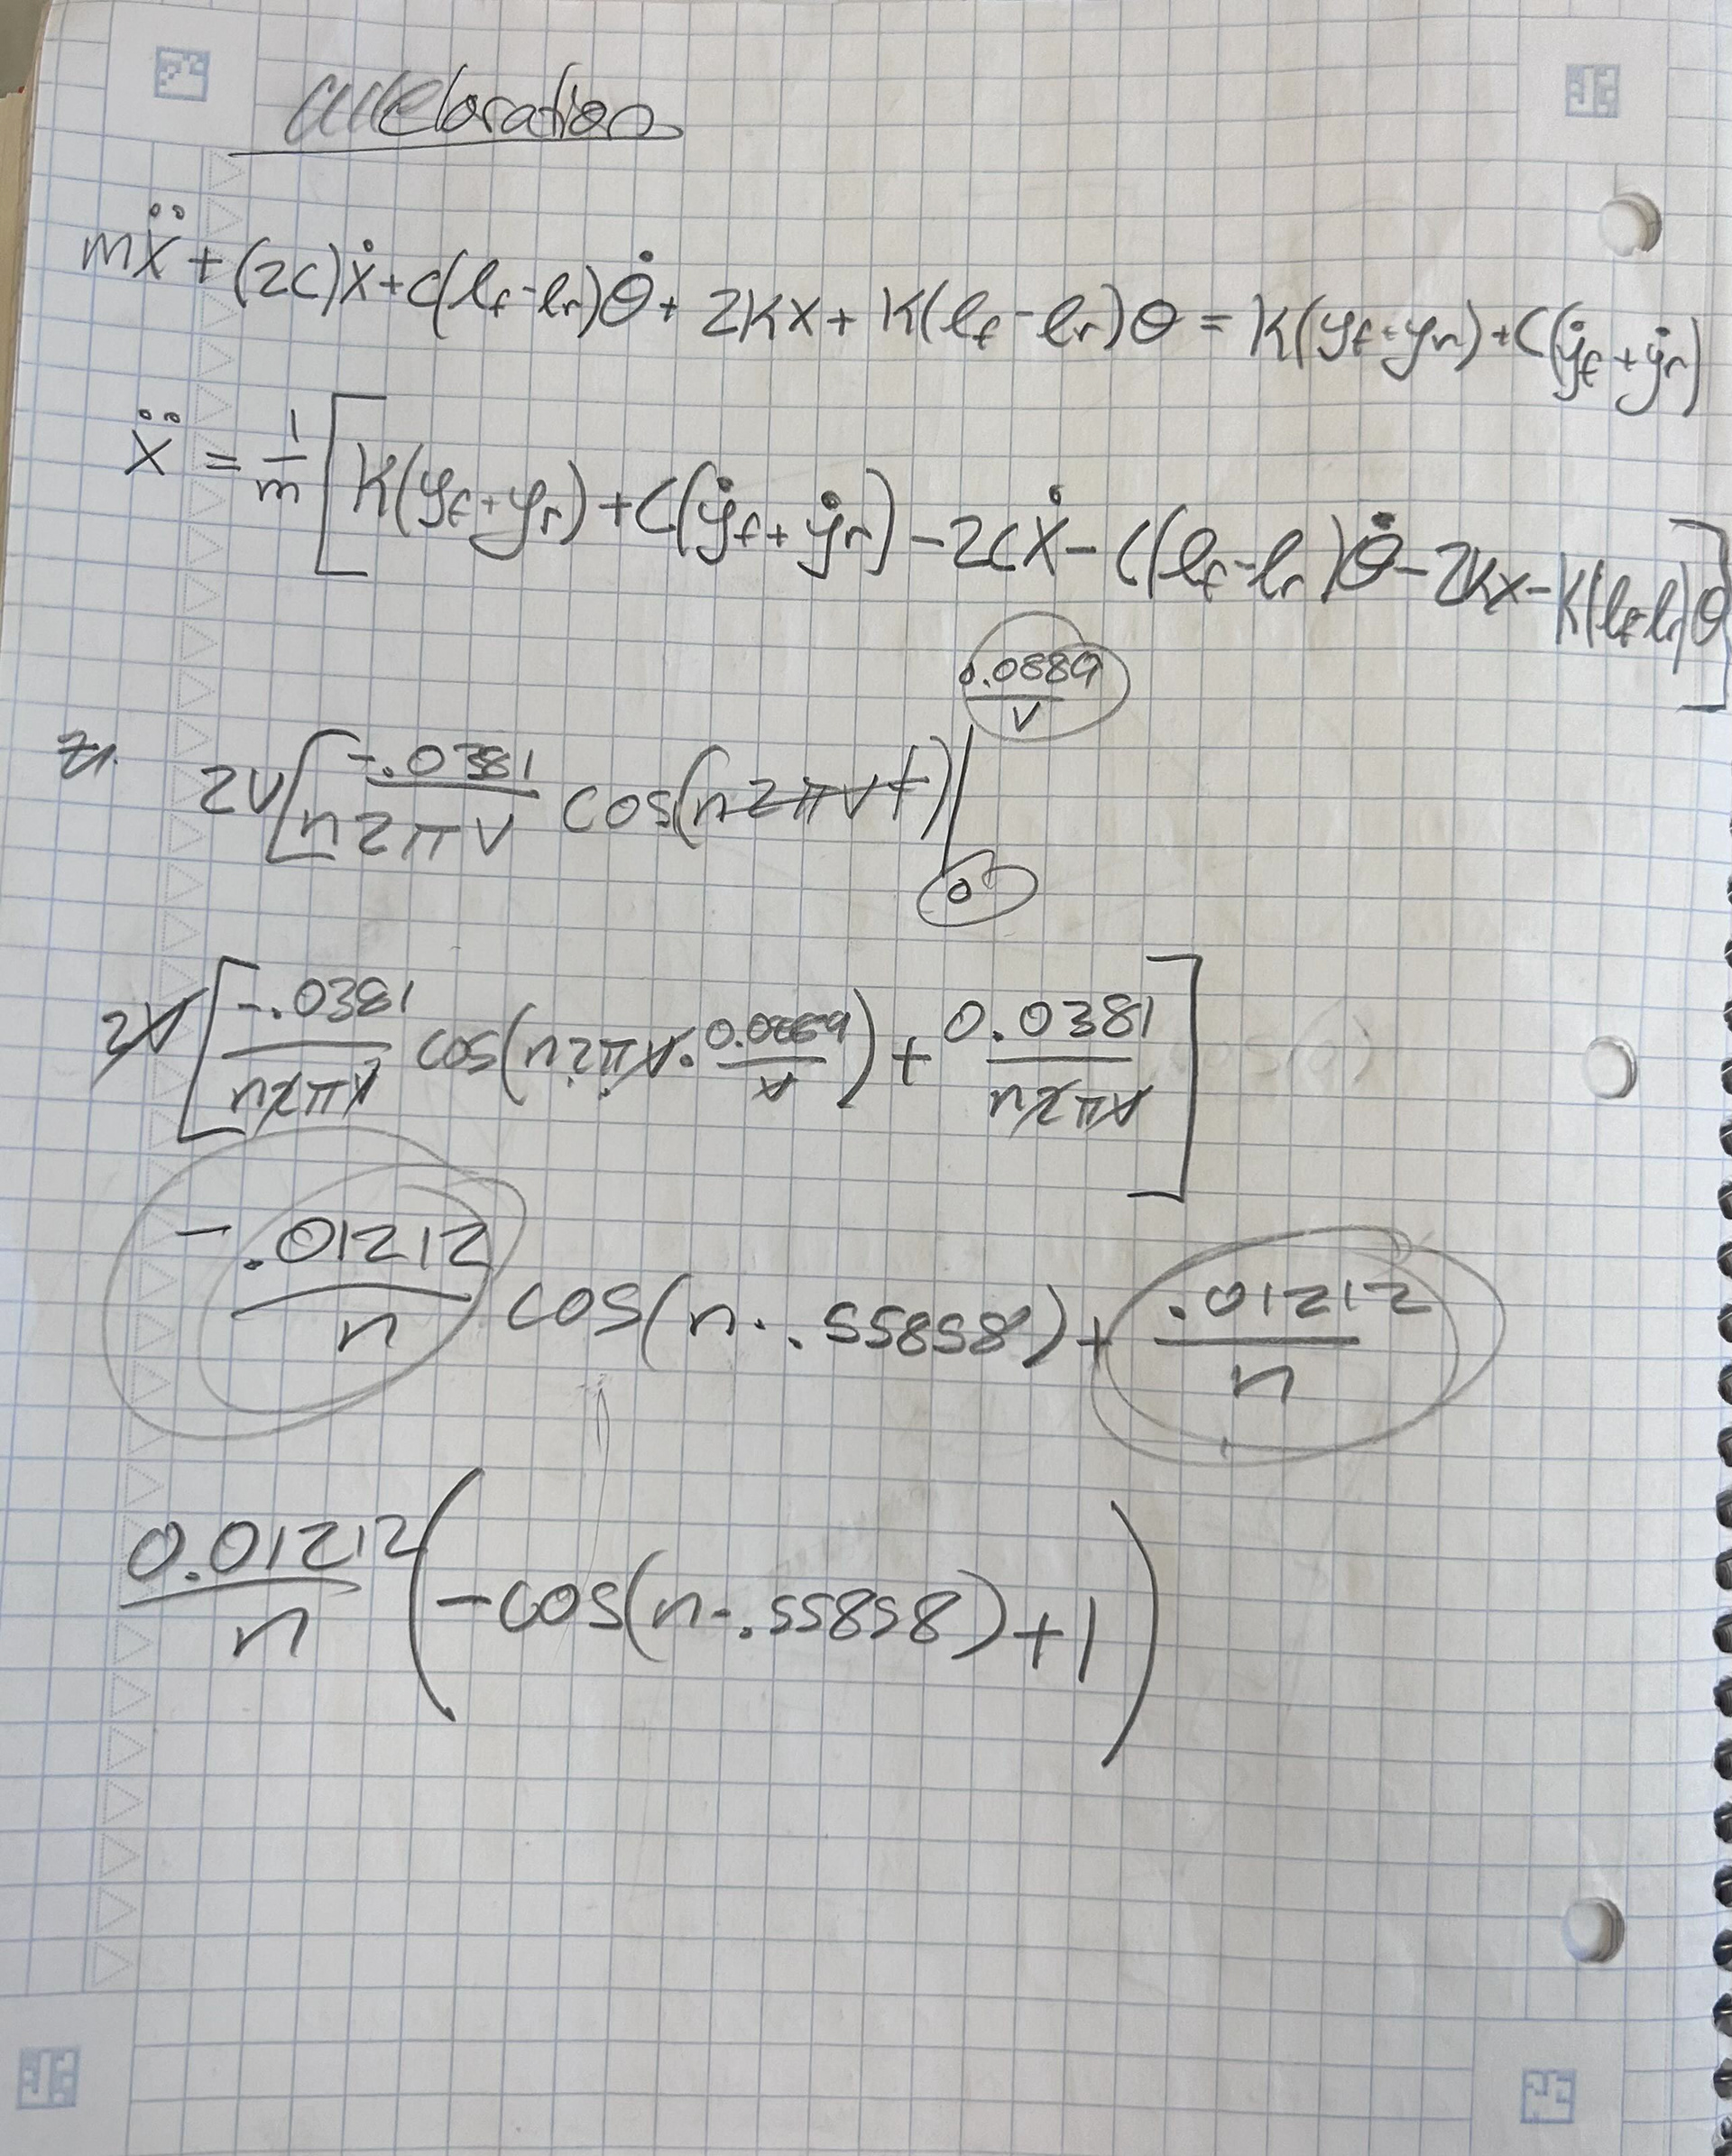 acceloration
mẍ + (2c)ẋ + c(lf - lr)θ̇ + 2kx + k(lf - lr)θ = k(yf + yr) + c(ẏf + ẏr)
ẍ = 1/m [k(yf + yr) + c(ẏf + ẏr) - 2cẋ - c(lf - lr)θ̇ - 2kx - k(lf - lr)θ]
2v[-.0381/n2πv cos(n2πvt)| 0.0889/v 0
2v[-.0381/n2πv cos(n2πv · 0.0889/v) + 0.0381/n2πv]
-.01212/n cos(n · .55858) + .01212/n
0.01212/n (-cos(n · .55858) + 1)